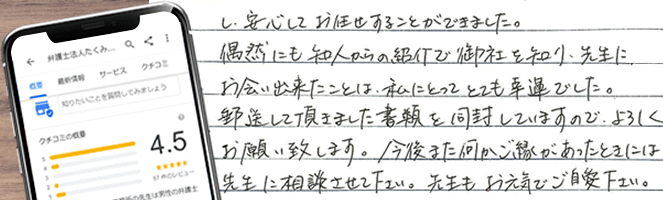 弁護士法人たくみ…
概要 最新情報 サービス クチコミ
知りたいことを質問してみましょう
クチコミの概要
5
4
3
2
1
4.5
所の先生は男性の弁護士
し、安心してお任せすることができました。
偶然にも知人からの紹介で御社を知り、先生に
お会い出来たことは、私にとってとても幸運でした。
郵送して頂きました書類を同封していますので、よろしく
お願い致します。今後また何かご縁があったときには
先生に相談させて下さい。先生もお元気でご自愛下さい。